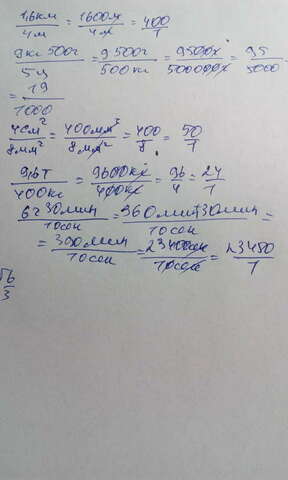 1,6км/4м = 1600м/4м = 400/1
9кг 500г/5ц = 9 500г/500кг = 9500г/500000г = 95/5000
= 19/1000
4см²/8мм² = 400мм²/8мм² = 400/8 = 50/1
9,6т/400кг = 9600кг/400кг = 96/4 = 24/1
6г 30мин/10сек = 360мин+30мин/10сек =
= 390мин/10сек = 23400сек/10сек = 23450/1